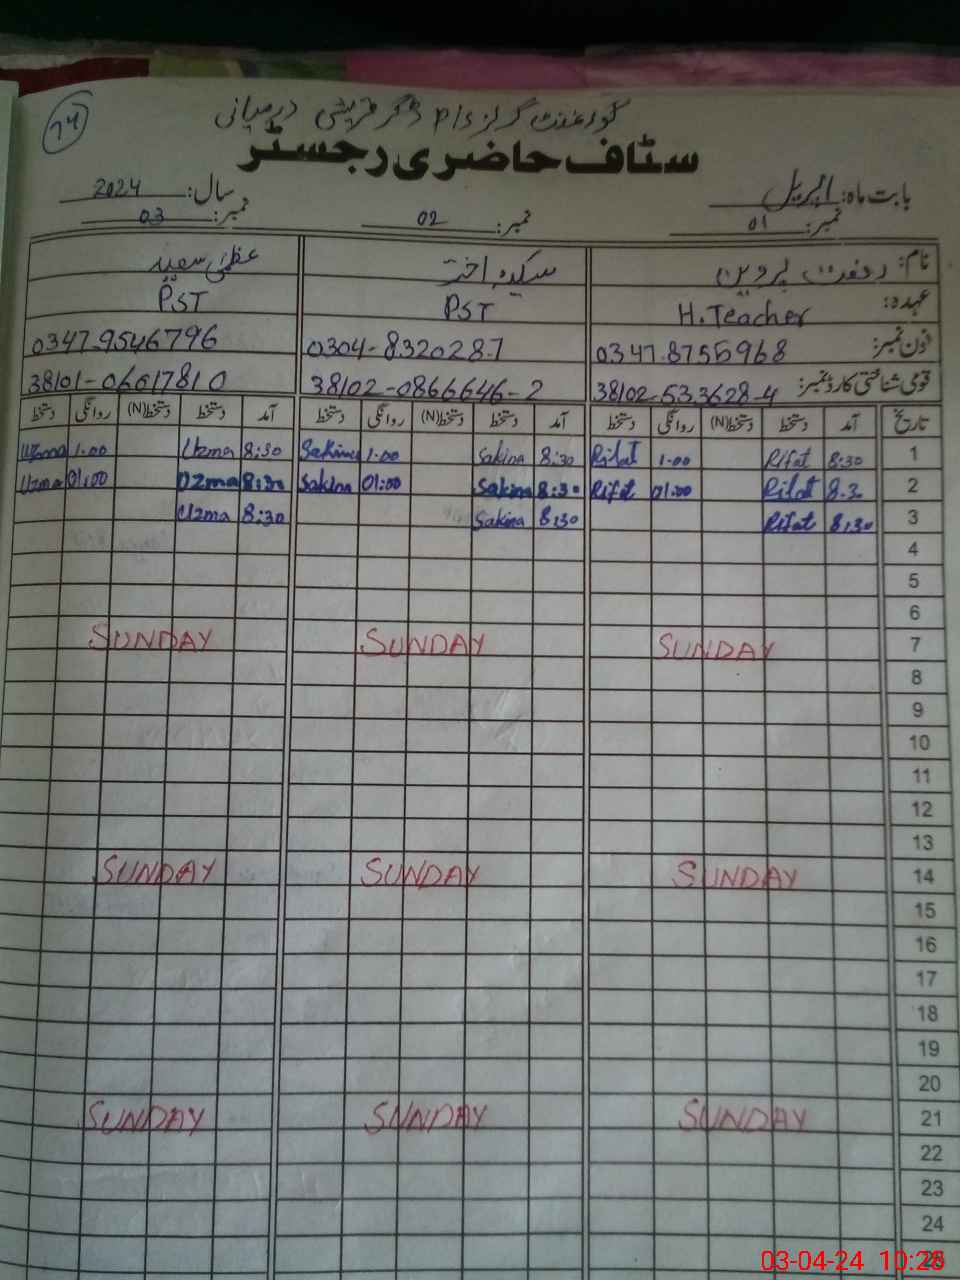 74
گورنمنٹ گرلز P/S ڈگر قریشی درمیانی
سٹاف حاضری رجسٹر
بابت ماہ: اپریل سال: 2024
نمبر: 01 نمبر: 02 نمبر: 03
نام: رفعت پروین سکینہ اختر عظمیٰ سعید
عہدہ: H.Teacher PST PST
فون نمبر: 0347-8755968 0304-8320287 0347-9546796
قومی شناختی کارڈ نمبر: 38102-533628-4 38102-0866646-2 38101-06617810
تاریخ آمد دستخط دستخط(N) روانگی دستخط آمد دستخط دستخط(N) روانگی دستخط آمد دستخط دستخط(N) روانگی دستخط
1 8:30 Rifat 1.00 Rifat 8:30 Sakina 1.00 Sakina 8:30 Uzma 1.00 Uzma
2 8.3 Rifat 01:00 Rifat 8:30 Sakina 01:00 Sakina 8:30 Uzma 01:00 Uzma
3 8:30 Rifat 8:30 Sakina 8:30 Uzma
4
5
6
7 SUNDAY SUNDAY SUNDAY
8
9
10
11
12
13
14 SUNDAY SUNDAY SUNDAY
15
16
17
18
19
20
21 SUNDAY SUNDAY SUNDAY
22
23
24
03-04-24 10:25